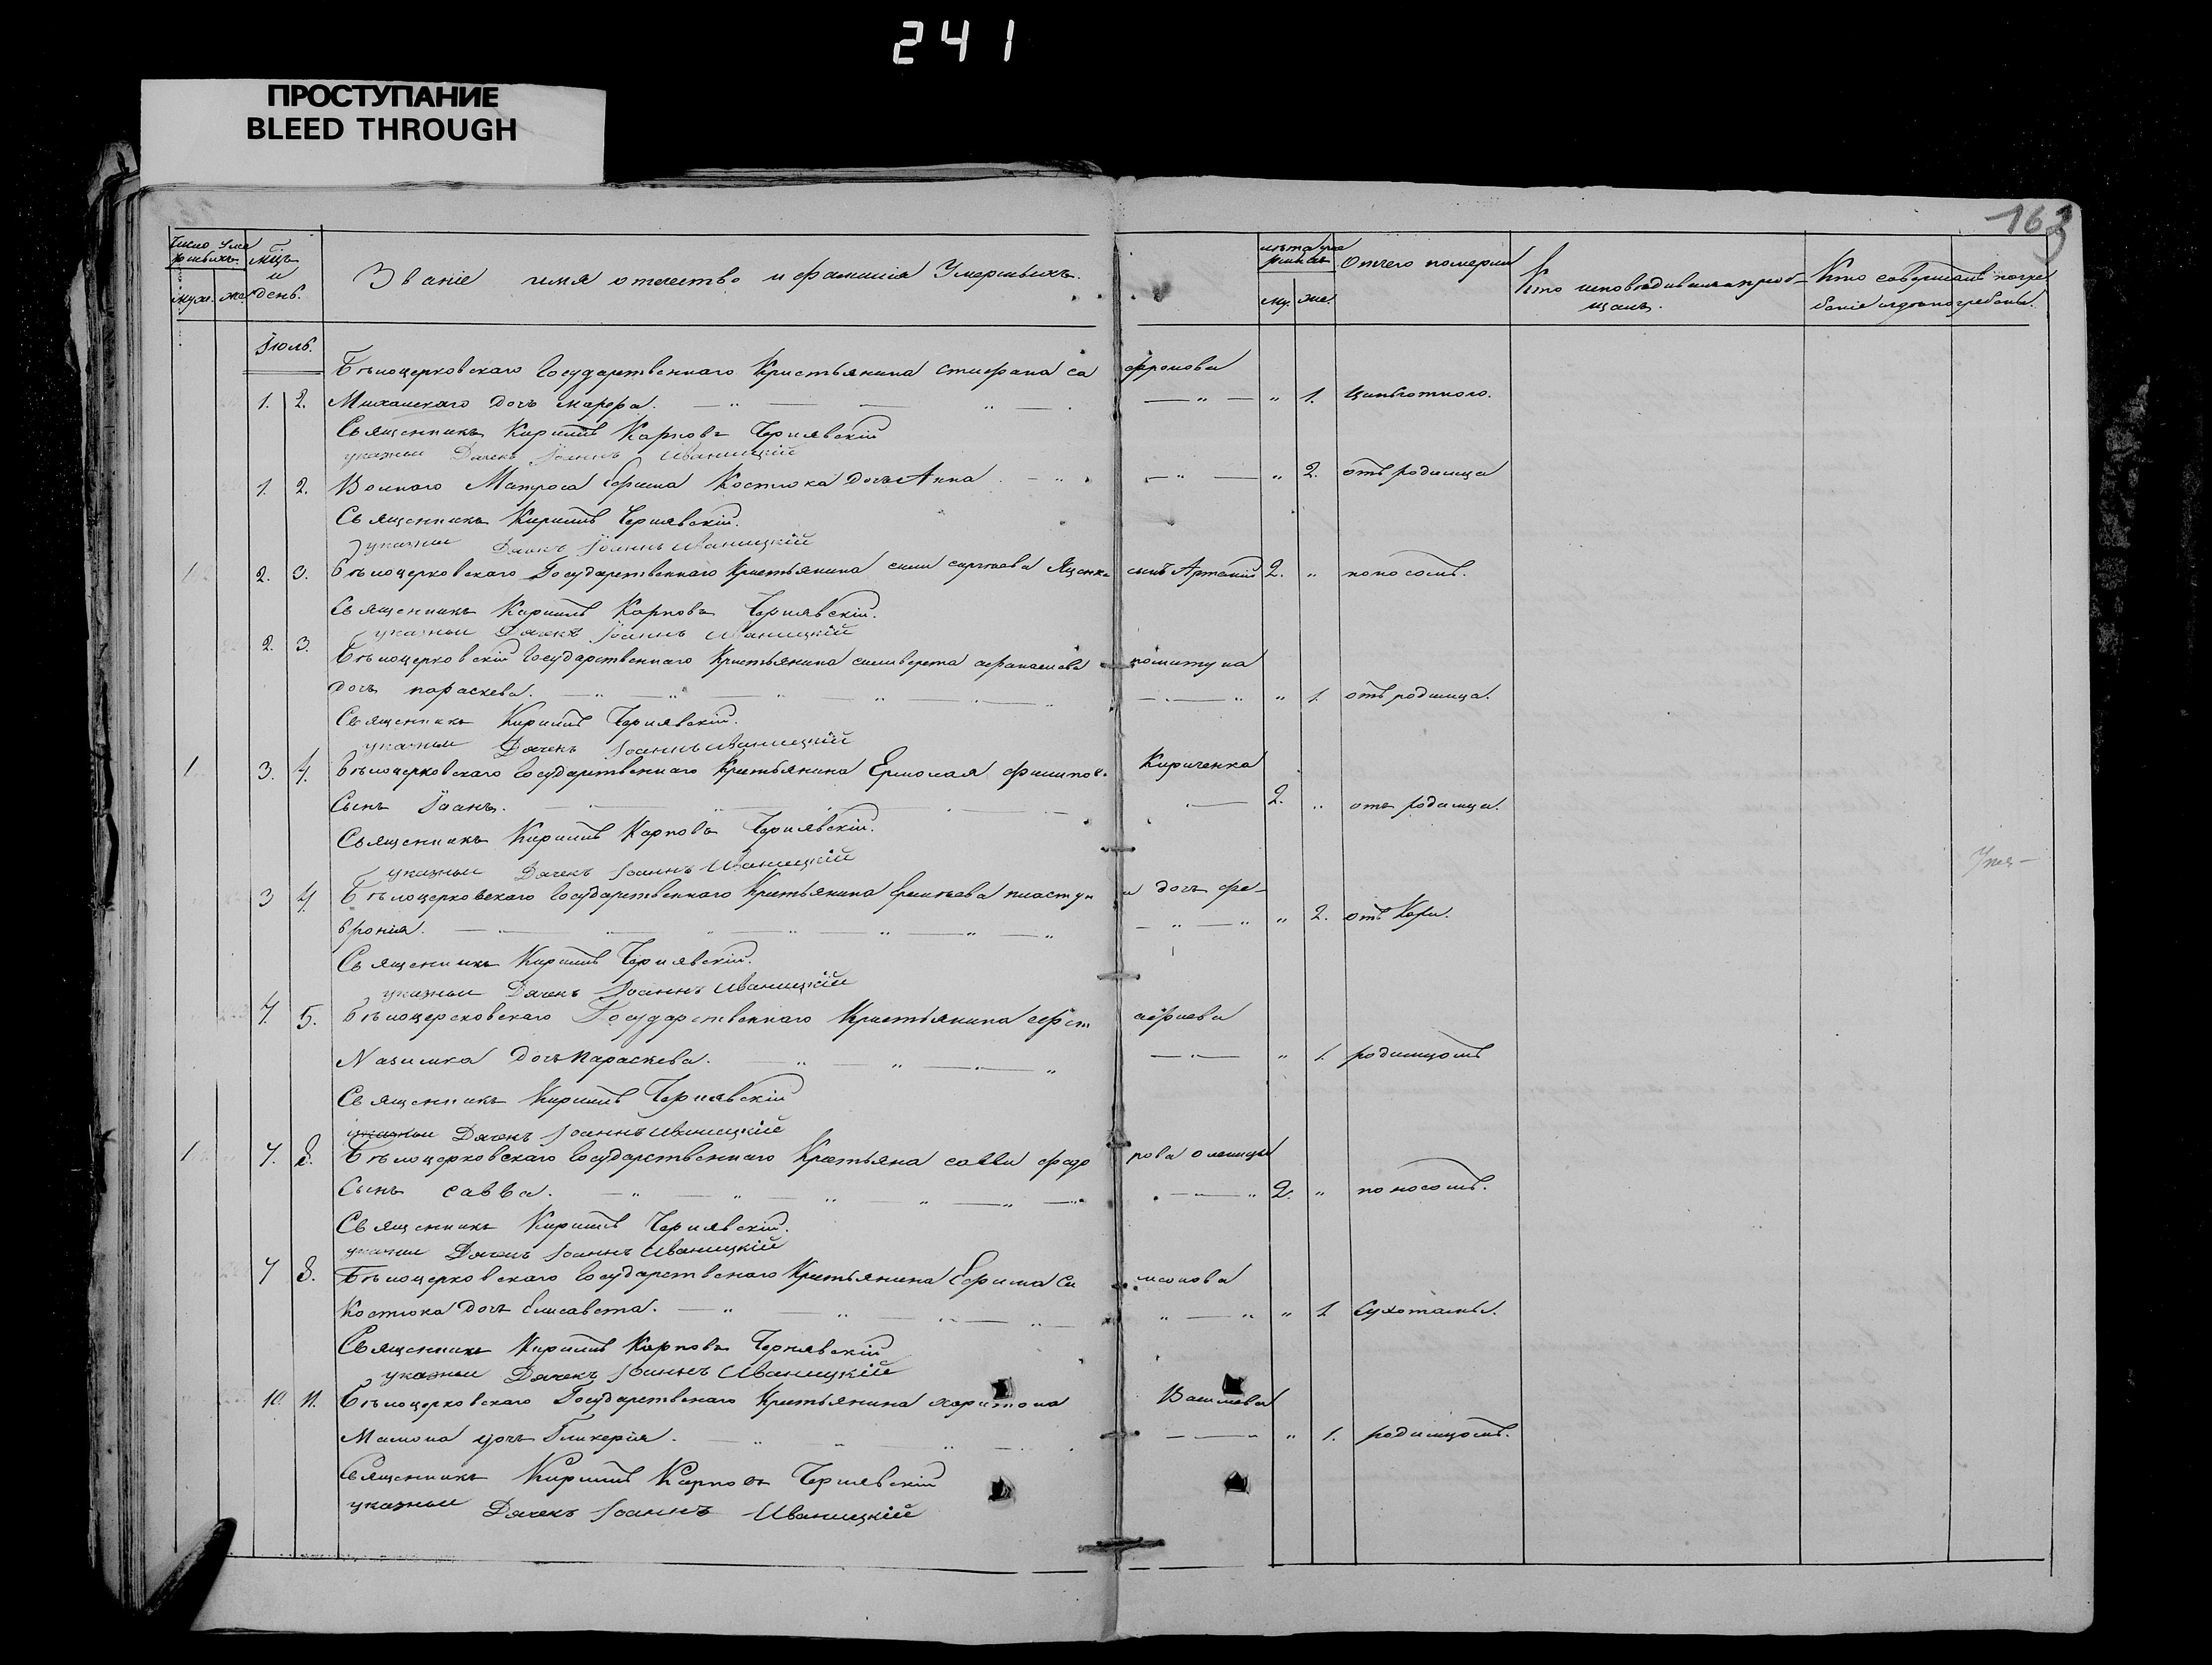 241
ПРОСТУПАНИЕ
BLEED THROUGH
163
Число умершихъ
мцъ и день.
Званіе имя отчество и фамилія Умершихъ.
лѣта умершихъ
Отчего померли
Кто исповѣдивалъ и пріобщалъ.
Кто совершалъ погребеніе и гдѣ погребены.
муж. жен
му. же
Іюль.
Бѣлоцерковскаго Государственнаго Кристьянина стифана сафронова
1. 2. Михалскаго дочь марфа. " 1. Цинготного.
Священникъ Кирилъ Карповъ Чернявскій
указныи Дячекъ Іоаннъ Иваницкій
1. 2. Волнаго Матроса Ефима Костюка дочь Анна " 2. отъ родимца
Священникъ Кирилъ Чернявскій.
указныи Дячекъ Іоаннъ Иваницкій
1 2. 3. Бѣлоцерковскаго Государственнаго Кристьянина силы сергѣева Яценка сынъ Артемій 2. " поносомъ.
Священникъ Кирилъ Карповъ Чернявскій.
указныи Дячекъ Іоаннъ Иваницкій
2. 3. Бѣлоцерковскій Государственнаго Кристьянина силиверста афанасиева
дочь параскева. " 1. отъ родимца.
Священникъ Кирилъ Чернявскій.
указныи Дячекъ Іоаннъ Иваницкій
1 3. 4. Бѣлоцерковскаго Государственнаго Крестьянина Ермолая филипов. Кириченка
Сынъ Іоанъ. 2. " отъ родимца.
Священникъ Кирилъ Карповъ Чернявскій.
указныи Дячекъ Іоаннъ Иваницкій
3 4. Бѣлоцерковскаго Государственнаго Крестьянина пластун и дочь фе-
вронія. " 2. отъ Кори.
Священникъ Кирилъ Чернявскій.
указныи Дячекъ Іоаннъ Иваницкій
4. 5. Бѣлоцерсковскаго Государственнаго Кристьянина
Назимка дочь параскева. " 1. родимцомъ
Священникъ Кирилъ Чернявскій
указныи Дячекъ Іоаннъ Иваницкій
1 7. 8. Бѣлоцерковскаго Государственнаго Крестьяна саввы федорова
Сынъ савва. 2. " поносомъ.
Священникъ Кирилъ Чернявскій.
указныи Дячекъ Іоаннъ Иваницкій
7 8. Бѣлоцерковскаго Государственаго Крестьянина Ефима Симонова
Костюка дочь Елисавета. " 1 Сухотамы.
Священникъ Кирилъ Карповъ Чернявскій
указныи Дячекъ Іоаннъ Иваницкій
10. 11. Бѣлоцерковскаго Государственаго Крестьянина харитона Василиева
Мамона дочь Гликерія. " 1. родимцомъ.
Священникъ Кирилъ Карповъ Чернявскій
указныи Дячекъ Іоаннъ Иваницкій